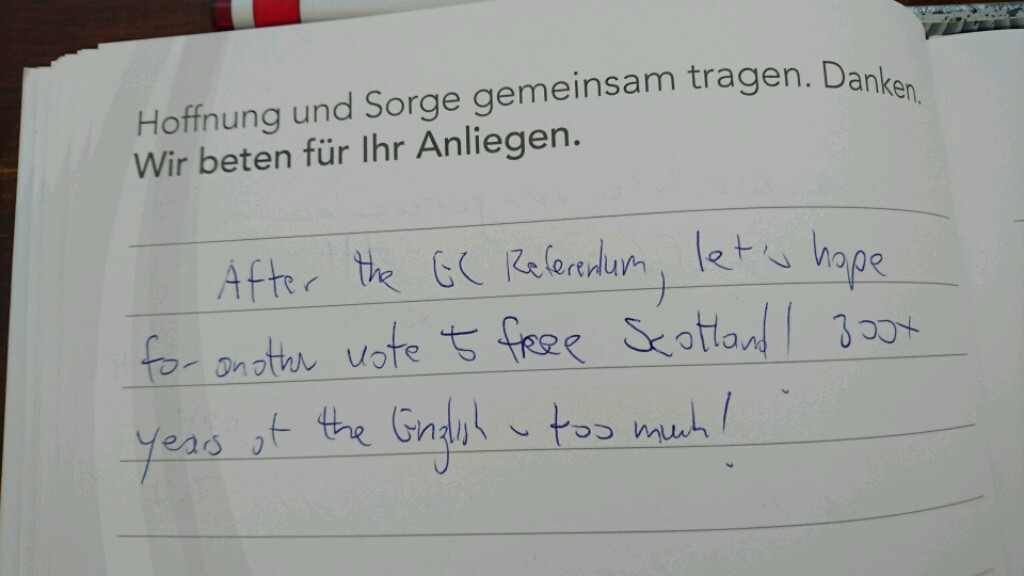 Hoffnung und Sorge gemeinsam tragen. Danken.
Wir beten für Ihr Anliegen.
After the EC Referendum, let's hope
for another vote to free Scotland! 300+
years of the English is too much!